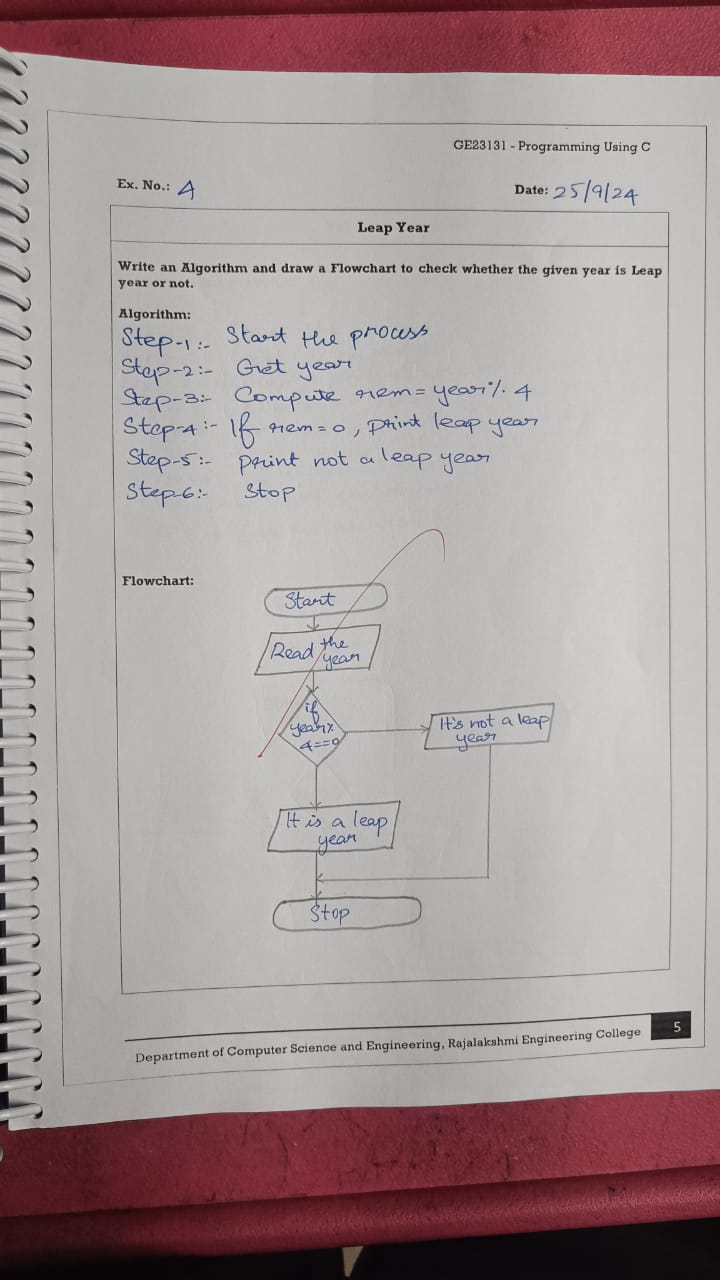 GE23131 - Programming Using C
Ex. No.: 4
Date: 25/9/24
Leap Year
Write an Algorithm and draw a Flowchart to check whether the given year is Leap
year or not.
Algorithm:
Step-1:- Start the process
Step-2:- Get year
Step-3:- Compute rem = year % 4
Step-4:- If rem = 0, print leap year
Step-5:- print not a leap year
Step-6:- Stop
Flowchart:
Start
Read the
year
if
year%
4==0
It's not a leap
year
It is a leap
year
Stop
5
Department of Computer Science and Engineering, Rajalakshmi Engineering College